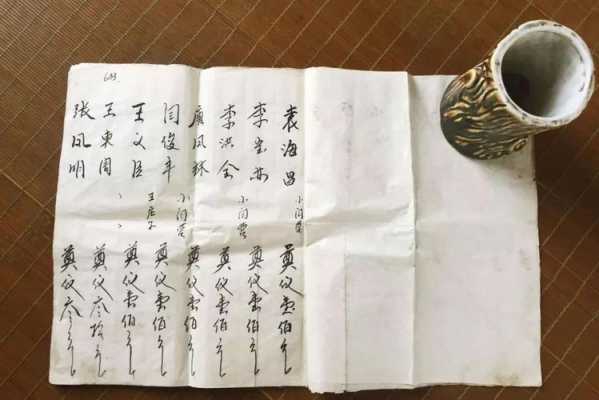 袁海昌 小闫营 奠仪壹佰元
李宝 奠仪壹佰元
李洪全 小闫营 奠仪壹佰元
凤林 奠仪壹佰元
闫俊丰 小闫营 奠仪壹佰元
王文臣 王庄 奠仪壹佰元
王东周 〃 奠仪叁拾元
张凤明 〃 奠仪叁元